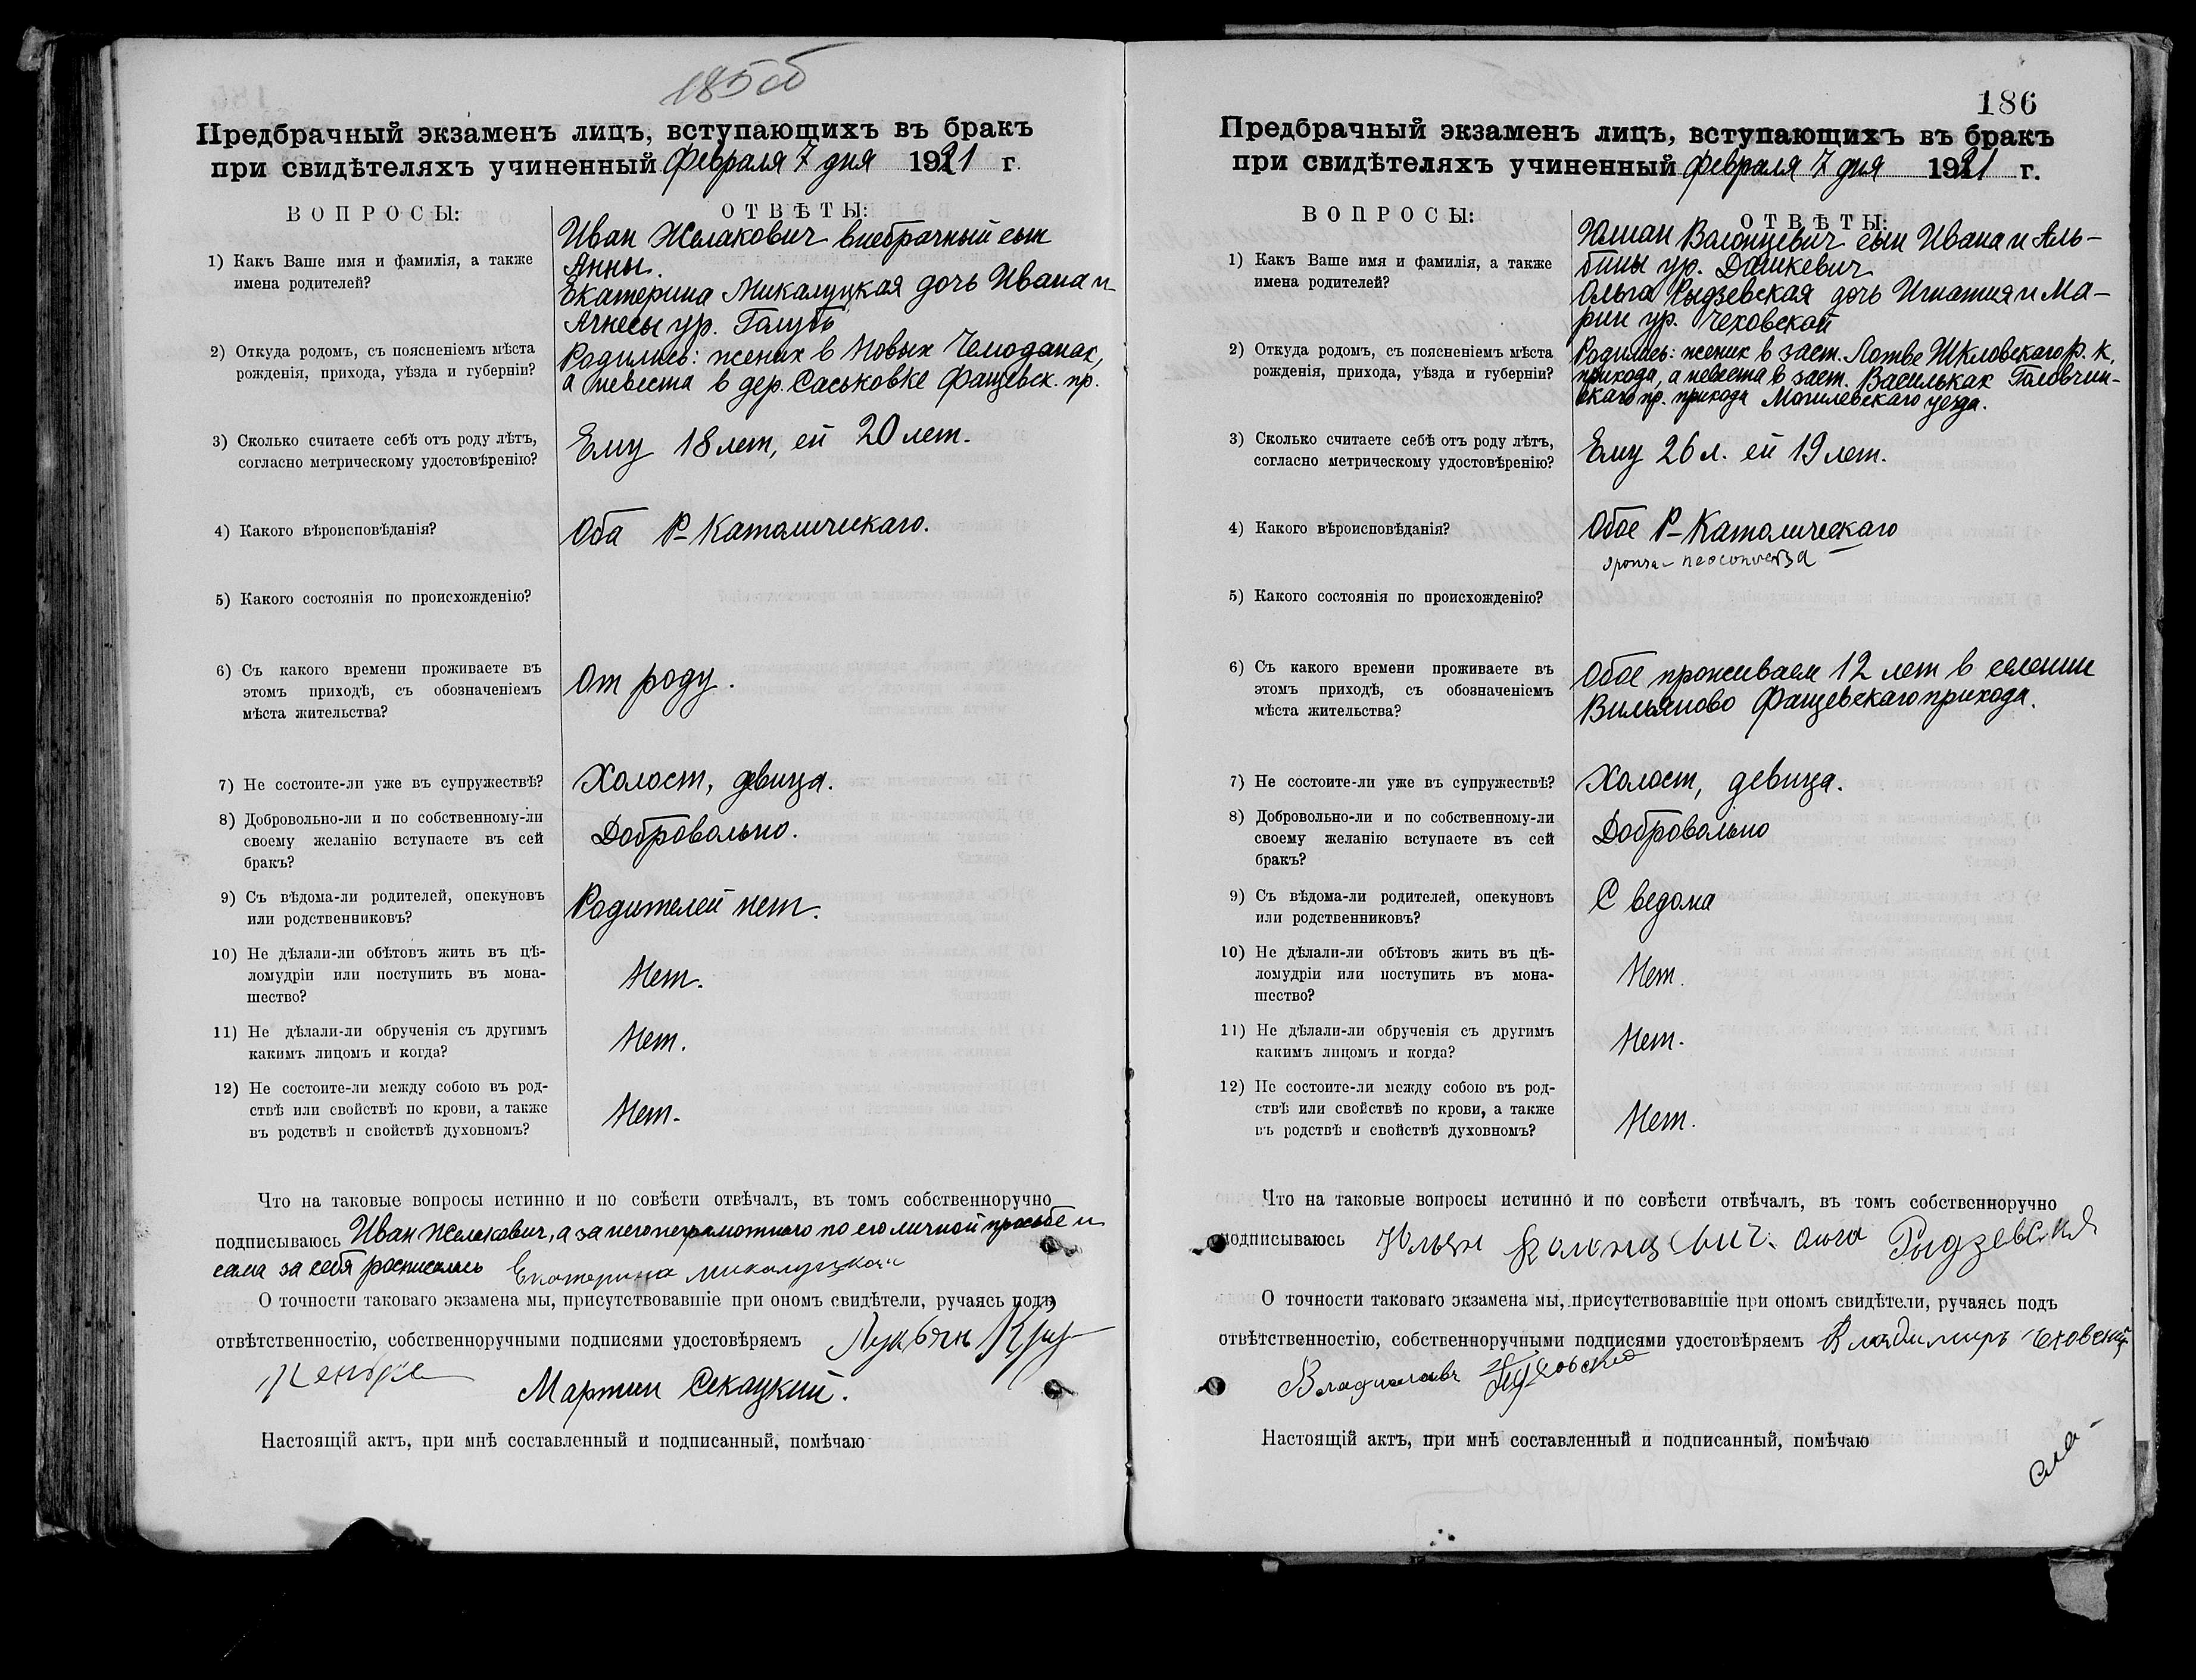 185об
Предбрачный экзаменъ лицъ, вступающихъ въ бракъ
при свидѣтеляхъ учиненный Февраля 7 дня 1921 г.
ВОПРОСЫ:
ОТВѢТЫ:
1) Какъ Ваше имя и фамилія, а также
имена родителей?
Иван Желакович внебрачный сын
Анны.
Екатерина Микалуцкая дочь Ивана и
Агнесы ур. Голубь
2) Откуда родомъ, съ поясненіемъ мѣста
рожденія, прихода, уѣзда и губерніи?
Родились: жених в Новых Чемоданах,
а невеста в дер. Саськовке Фащевск. пр.
3) Сколько считаете себѣ отъ роду лѣтъ,
согласно метрическому удостовѣренію?
Ему 18 лет, ей 20 лет.
4) Какого вѣроисповѣданія?
Оба Р-Католическаго.
5) Какого состоянія по происхожденію?
6) Съ какого времени проживаете въ
этомъ приходѣ, съ обозначеніемъ
мѣста жительства?
От роду.
7) Не состоите-ли уже въ супружествѣ?
Холост, девица.
8) Добровольно-ли и по собственному-ли
своему желанію вступаете въ сей
бракъ?
Добровольно.
9) Съ вѣдома-ли родителей, опекуновъ
или родственниковъ?
Родителей нет.
10) Не дѣлали-ли обѣтовъ жить въ цѣ-
ломудріи или поступить въ мона-
шество?
Нет.
11) Не дѣлали-ли обрученія съ другимъ
какимъ лицомъ и когда?
Нет.
12) Не состоите-ли между собою въ род-
ствѣ или свойствѣ по крови, а также
въ родствѣ и свойствѣ духовномъ?
Нет.
Что на таковые вопросы истинно и по совѣсти отвѣчалъ, въ томъ собственноручно
подписываюсь Иван Желакович, а за него неграмотного по его личной просьбе и
сама за себя росписалась Екатерина Микалуцкая
О точности таковаго экзамена мы, присутствовавшіе при ономъ свидѣтели, ручаясь подъ
отвѣтственностію, собственноручными подписями удостовѣряемъ Лукьян
Мартин Секацкий.
Настоящій актъ, при мнѣ составленный и подписанный, помѣчаю
186
Предбрачный экзаменъ лицъ, вступающихъ въ бракъ
при свидѣтеляхъ учиненный Февраля 7 дня 1921 г.
ВОПРОСЫ:
ОТВѢТЫ:
1) Какъ Ваше имя и фамилія, а также
имена родителей?
Юлиан Валонцевич сын Ивана и Аль-
бины ур. Дашкевич
Ольга Рыдзевская дочь Игнатия и Ма-
рии ур. Чеховской
2) Откуда родомъ, съ поясненіемъ мѣста
рожденія, прихода, уѣзда и губерніи?
Родились: жених в заст. Лотве Шкловскаго р. к.
прихода, а невеста в заст. Васильках Головчин-
скаго пр. прихода Могилевскаго уезда.
3) Сколько считаете себѣ отъ роду лѣтъ,
согласно метрическому удостовѣренію?
Ему 26 л. ей 19 лет.
4) Какого вѣроисповѣданія?
Обое Р-Католическаго
5) Какого состоянія по происхожденію?
6) Съ какого времени проживаете въ
этомъ приходѣ, съ обозначеніемъ
мѣста жительства?
Обое проживаем 12 лет в селении
Вильяново Фащевскаго прихода.
7) Не состоите-ли уже въ супружествѣ?
Холост, девица.
8) Добровольно-ли и по собственному-ли
своему желанію вступаете въ сей
бракъ?
Добровольно
9) Съ вѣдома-ли родителей, опекуновъ
или родственниковъ?
С ведома
10) Не дѣлали-ли обѣтовъ жить въ цѣ-
ломудріи или поступить въ мона-
шество?
Нет.
11) Не дѣлали-ли обрученія съ другимъ
какимъ лицомъ и когда?
Нет.
12) Не состоите-ли между собою въ род-
ствѣ или свойствѣ по крови, а также
въ родствѣ и свойствѣ духовномъ?
Нет.
Что на таковые вопросы истинно и по совѣсти отвѣчалъ, въ томъ собственноручно
подписываюсь Юльян Валонцевич. Рыдзевская
О точности таковаго экзамена мы, присутствовавшіе при ономъ свидѣтели, ручаясь подъ
отвѣтственностію, собственноручными подписями удостовѣряемъ Владимиръ Чеховский
Владиславъ
Настоящій актъ, при мнѣ составленный и подписанный, помѣчаю